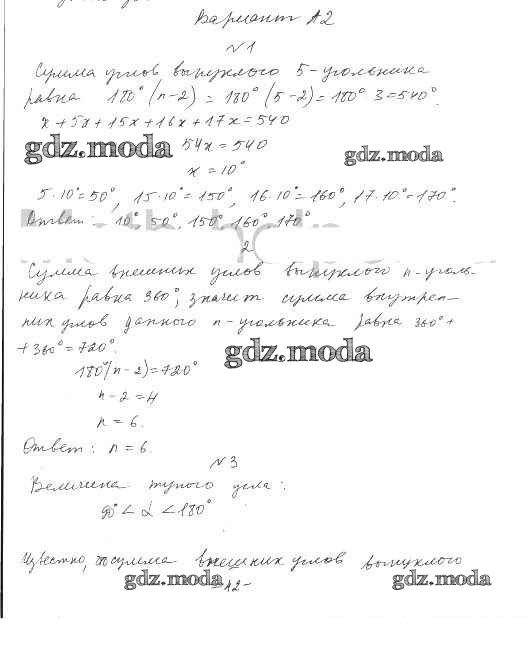 Вариант А2
№1
Сумма углов выпуклого 5-угольника
равна 180°(n-2) = 180°(5-2) = 180° 3 = 540°.
x + 5x + 15x + 16x + 17x = 540
gdz.moda 54x = 540 gdz.moda
x = 10°
5·10° = 50°, 15·10° = 150°, 16·10° = 160°, 17·10° = 170°.
Ответ: 10°, 50°, 150°, 160°, 170°
2
Сумма внешних углов выпуклого n-уголь-
ника равна 360°, значит сумма внутрен-
них углов данного n-угольника равна 360° +
+ 360° = 720°.
gdz.moda
180°(n-2) = 720°
n - 2 = 4
n = 6.
Ответ: n = 6.
№3
Величина тупого угла:
90° < α < 180°
Известно, что сумма внешних углов выпуклого
gdz.moda -А2- gdz.moda